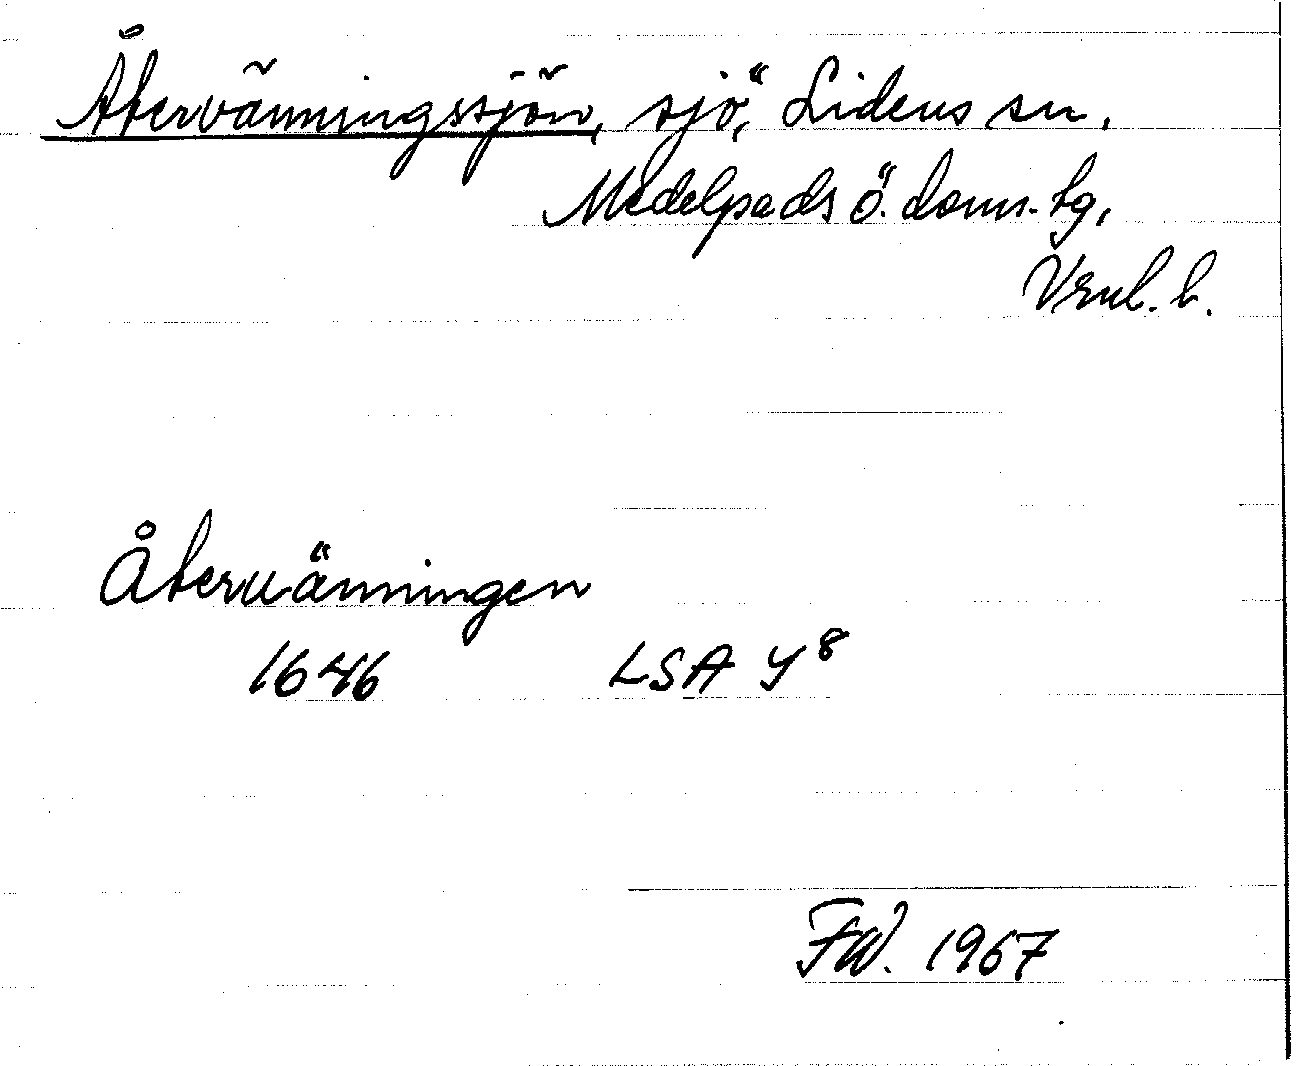 Återvänningssjön, sjö, Lidens sn.
Medelpads ö. doms.-tg,
Vrnl. l.
Återuänningen
1646 LSA Y8
FW. 1967